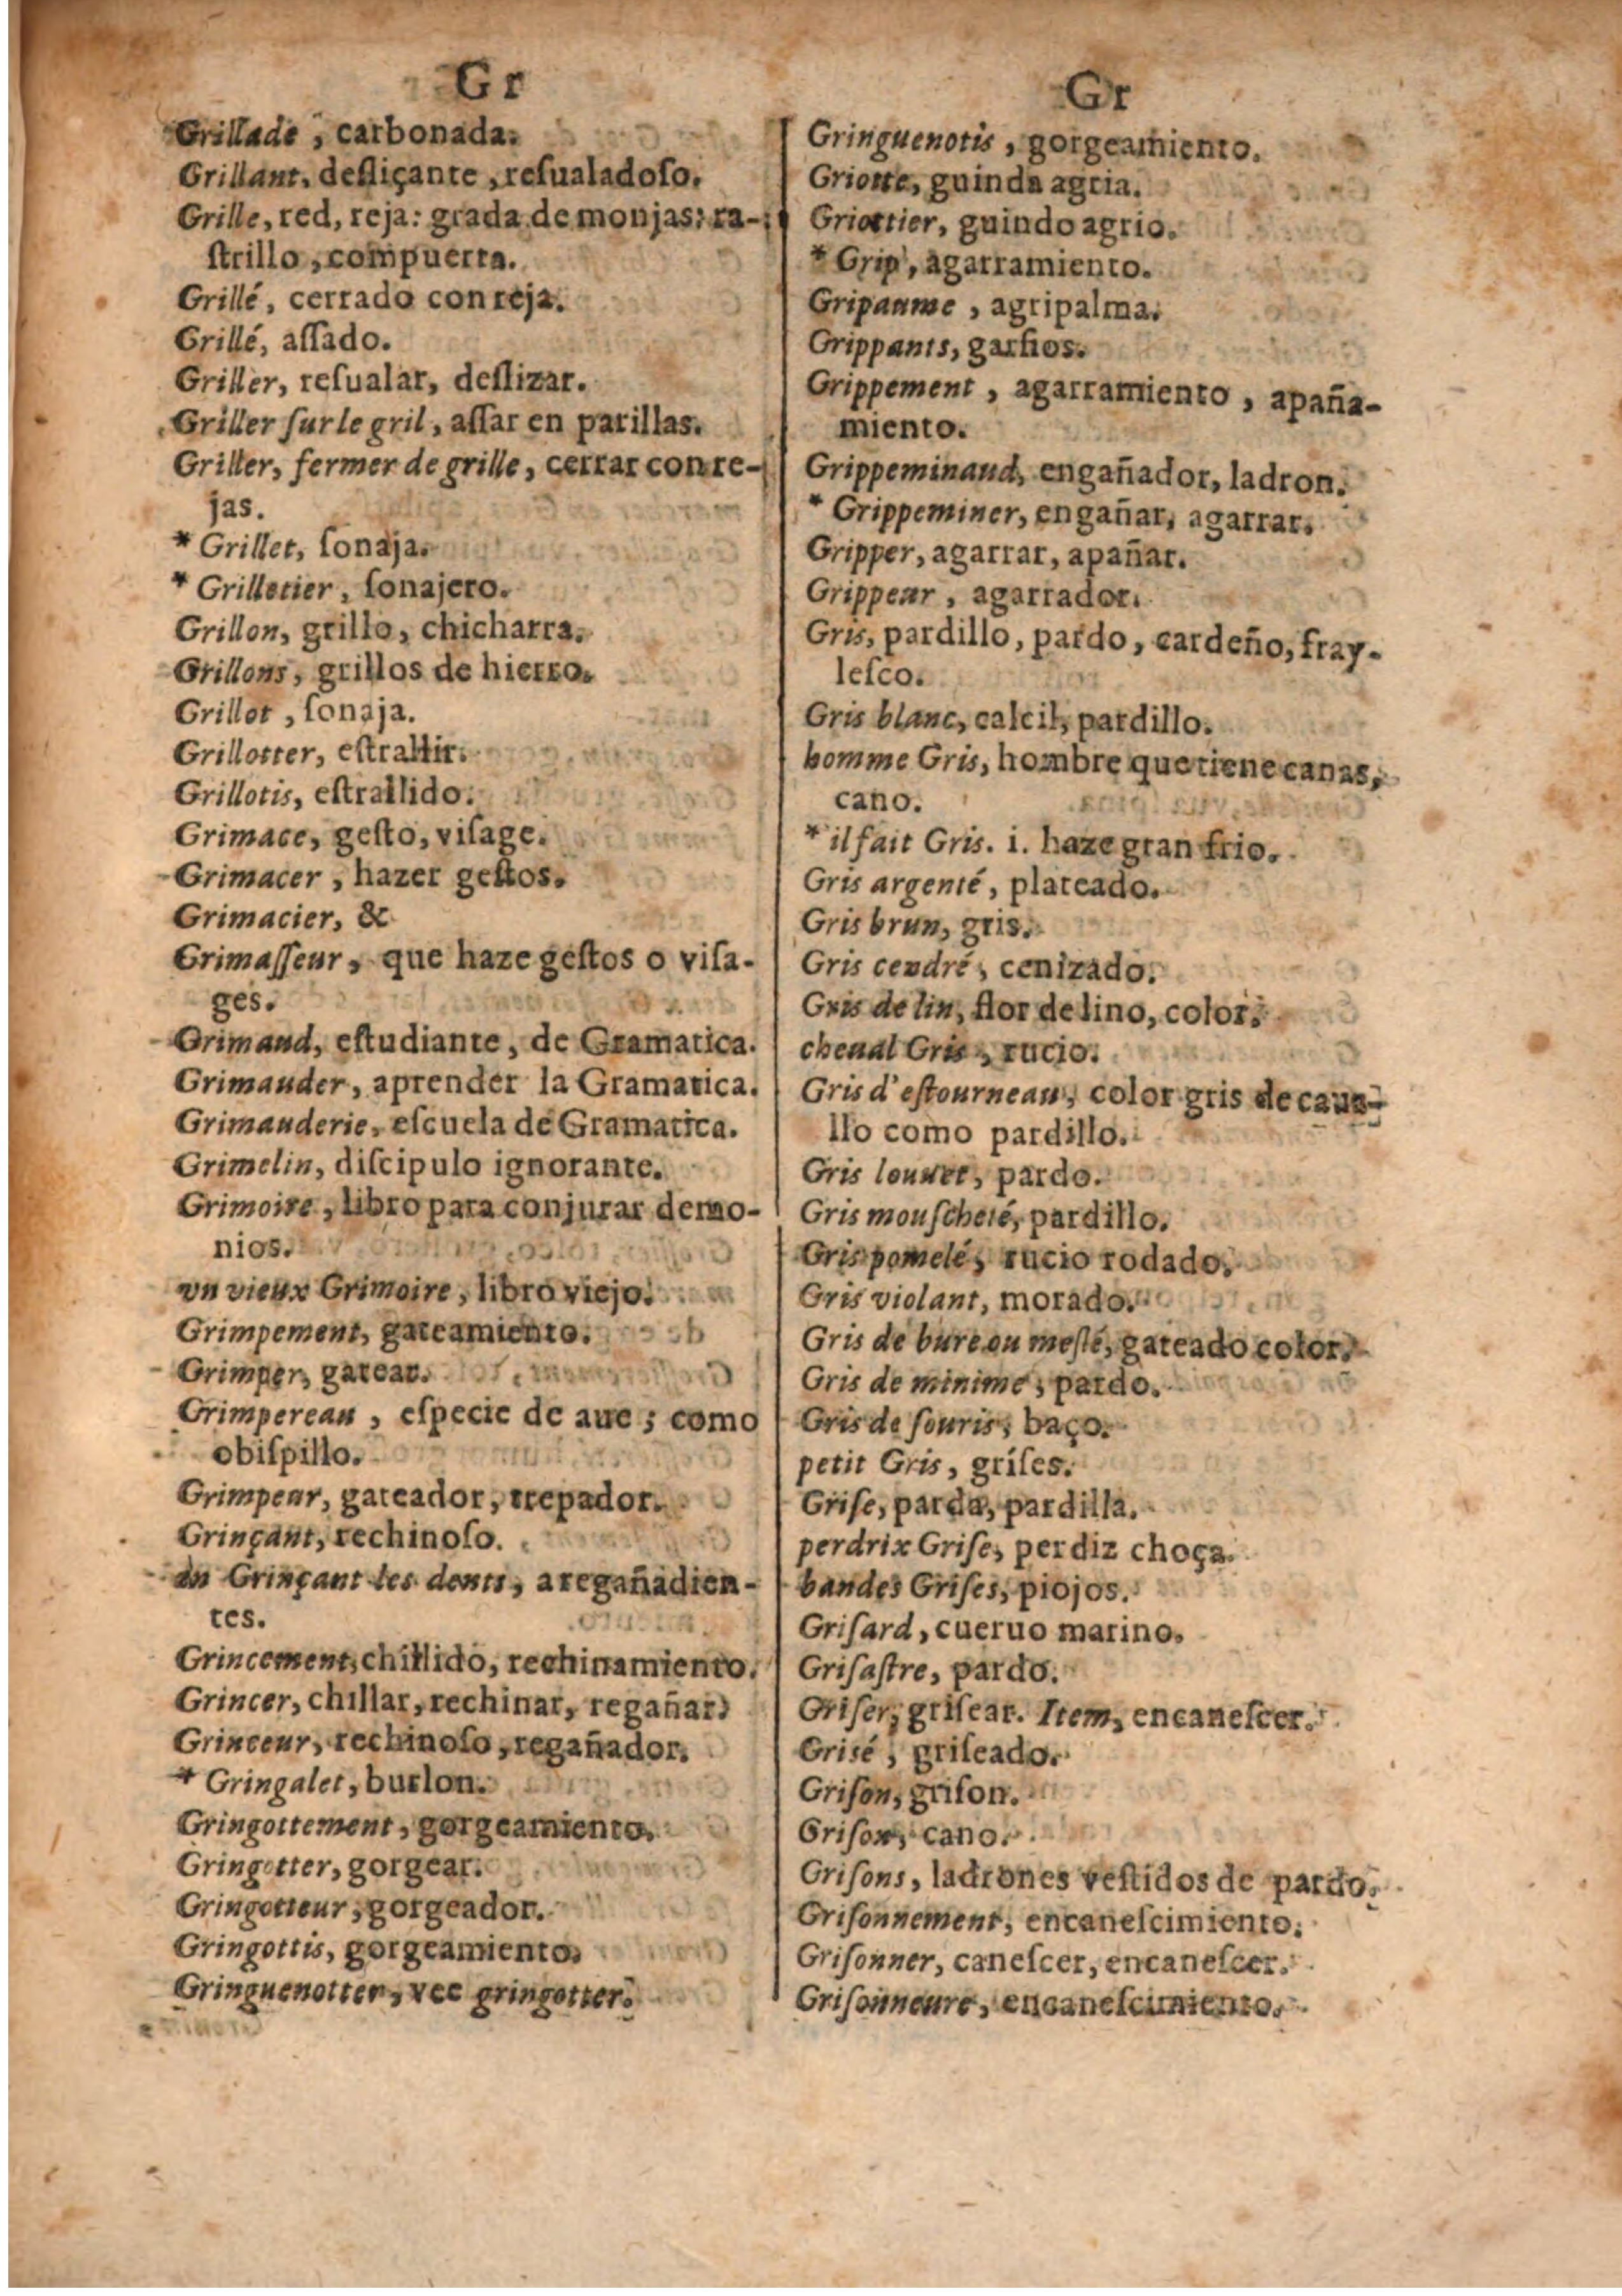 Gr
Grillade, carbonada.
Grillant, desliçante, reſualadoſo.
Grille, red, reja: grada de monjas: ra-
ſtrillo, compuerta.
Grillé, cerrado con reja.
Grillé, aſſado.
Griller, reſualar, deſlizar.
Griller ſur le gril, aſſar en parillas.
Griller, fermer de grille, cerrar con re-
jas.
* Grillet, ſonaja.
* Grilletier, ſonajero.
Grillon, grillo, chicharra.
Grillons, grillos de hierro.
Grillot, ſonaja.
Grillotter, eſtrallir.
Grillotis, eſtrallido.
Grimace, geſto, viſage.
Grimacer, hazer geſtos.
Grimacier, &
Grimaſſeur, que haze geſtos o viſa-
ges.
Grimaud, eſtudiante, de Gramatica.
Grimauder, aprender la Gramatica.
Grimauderie, eſcuela de Gramatica.
Grimelin, diſcipulo ignorante.
Grimoire, libro para conjurar demo-
nios.
vn vieux Grimoire, libro viejo.
Grimpement, gateamiento.
Grimper, gatear.
Grimpereau, eſpecie de aue; como
obiſpillo.
Grimpeur, gateador, trepador.
Grinçant, rechinoſo.
en Grinçant les dents, a regañadien-
tes.
Grincement, chillido, rechinamiento.
Grincer, chillar, rechinar, regañar.
Grinceur, rechinoſo, regañador.
* Gringalet, burlon.
Gringottement, gorgeamiento.
Gringotter, gorgear.
Gringotteur, gorgeador.
Gringottis, gorgeamiento.
Gringuenotter, vee gringotter.
Gr
Gringuenotis, gorgeamiento.
Griotte, guinda agria.
Griottier, guindo agrio.
* Grip, agarramiento.
Gripaume, agripalma.
Grippants, garfios.
Grippement, agarramiento, apaña-
miento.
Grippeminaud, engañador, ladron.
* Grippeminer, engañar, agarrar.
Gripper, agarrar, apañar.
Grippeur, agarrador.
Gris, pardillo, pardo, cardeño, fray-
leſco.
Gris blanc, calcil, pardillo.
homme Gris, hombre que tiene canas,
cano.
* il fait Gris. i. haze gran frio.
Gris argenté, plateado.
Gris brun, gris.
Gris cendré, cenizado.
Gris de lin, flor de lino, color.
cheual Gris, rucio.
Gris d'eſtourneau, color gris de caua-
llo como pardillo.
Gris louuet, pardo.
Gris mouſcheté, pardillo.
Gris pomelé, rucio rodado.
Gris violant, morado.
Gris de bure ou meſlé, gateado color.
Gris de minime, pardo.
Gris de ſouris, baço.
petit Gris, griſes.
Griſe, parda, pardilla.
perdrix Griſe, perdiz choça.
bandes Griſes, piojos.
Griſard, cueruo marino.
Griſaſtre, pardo.
Griſer, griſear. Item, encaneſcer.
Grisé, griſeado.
Griſon, griſon.
Griſon, cano.
Griſons, ladrones veſtidos de pardo.
Griſonnement, encaneſcimiento.
Griſonner, caneſcer, encaneſcer.
Griſonneure, encaneſcimiento.